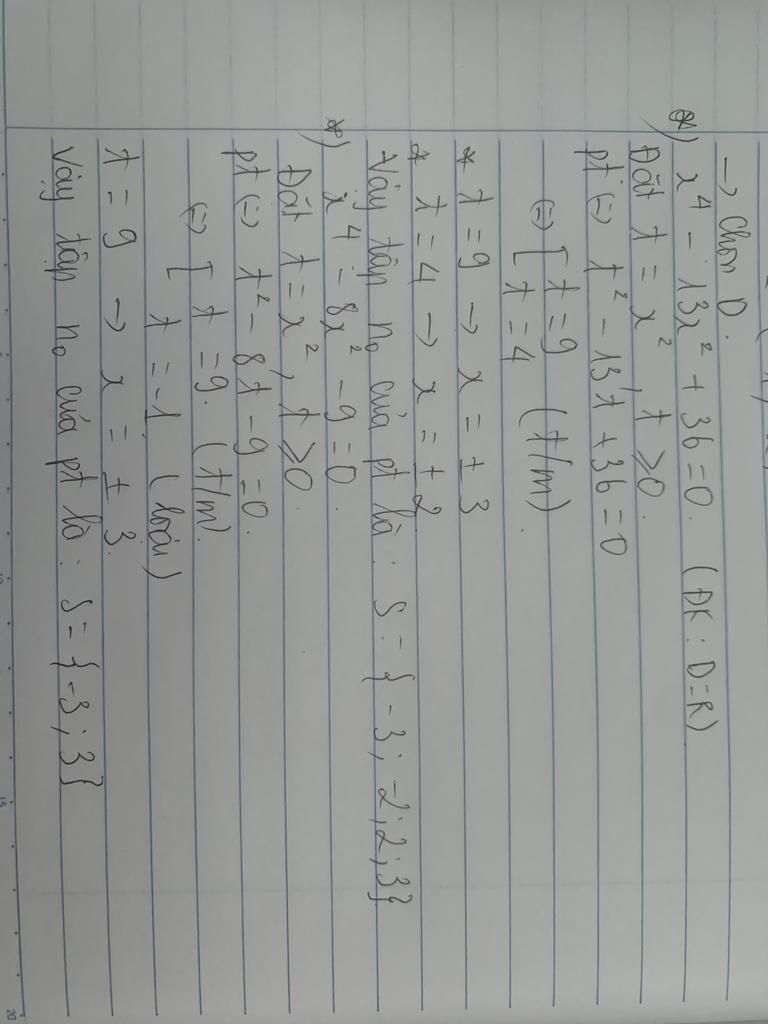 → Chọn D.
*) x⁴ - 13x² + 36 = 0. (ĐK: D=R)
Đặt t = x², t ≥ 0.
pt (=) t² - 13t + 36 = 0
(=) [ t = 9 (t/m)
t = 4
* t = 9 → x = ± 3
* t = 4 → x = ± 2
Vậy tập n₀ của pt là : S = { -3 ; -2 ; 2 ; 3}
*) x⁴ - 8x² - 9 = 0.
Đặt t = x², t ≥ 0
pt (=) t² - 8t - 9 = 0.
(=) [ t = 9. (t/m)
t = -1 (loại)
t = 9 → x = ± 3.
Vậy tập n₀ của pt là : S = { -3 ; 3}